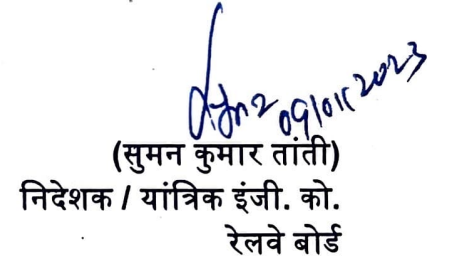 09/01/2023
(सुमन कुमार तांती)
निदेशक / यांत्रिक इंजी. को.
रेलवे बोर्ड